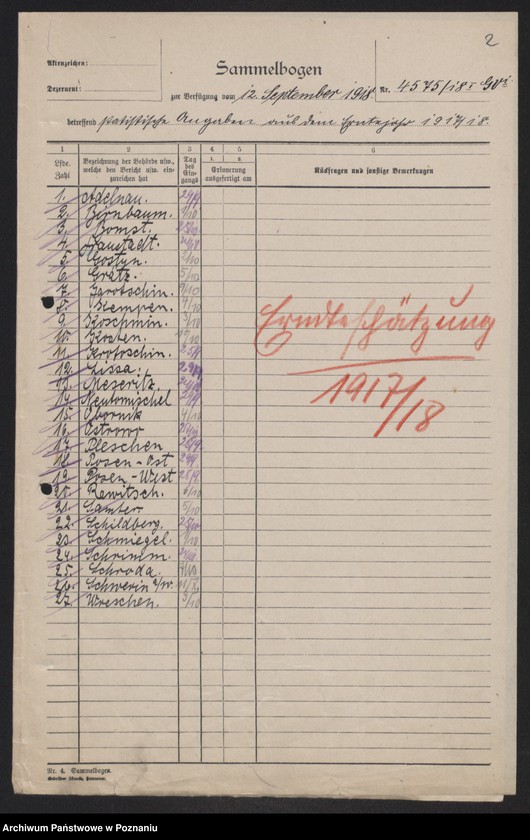 2
Aktenzeichen:
Dezernent:
Sammelbogen
zur Verfügung vom 12. September 1918 Nr. 4575/18 I
betreffend statistische Angaben aus dem Erntejahr 1917/18.
1 2 3 4 5 6
Lfde. Zahl
Bezeichnung der Behörde usw., welche den Bericht usw. einzureichen hat
Tag des Eingangs
1. 2.
Erinnerung ausgefertigt am
Rückfragen und sonstige Bemerkungen
1. Adelnau.
2. Birnbaum.
3. Bomst.
4. Fraustadt.
5. Gostyn.
6. Grätz. 5/10
7. Jarotschin. 9/10
8. Kempen. 4/10
9. Koschmin. 3/10
10. Kosten.
11. Krotoschin.
12. Lissa.
13. Meseritz.
14. Neutomischel
15. Obornik 4/10
16. Ostrowo
17. Pleschen
18. Posen-Ost
19. Posen-West
20. Rawitsch. 6/10
21. Samter 5/10
22. Schildberg.
23. Schmiegel.
24. Schrimm.
25. Schroda.
26. Schwerin a/W.
27. Wreschen. 5/10
Erndteschätzung
1917/18
Nr. 4. Sammelbogen.
Archiwum Państwowe w Poznaniu